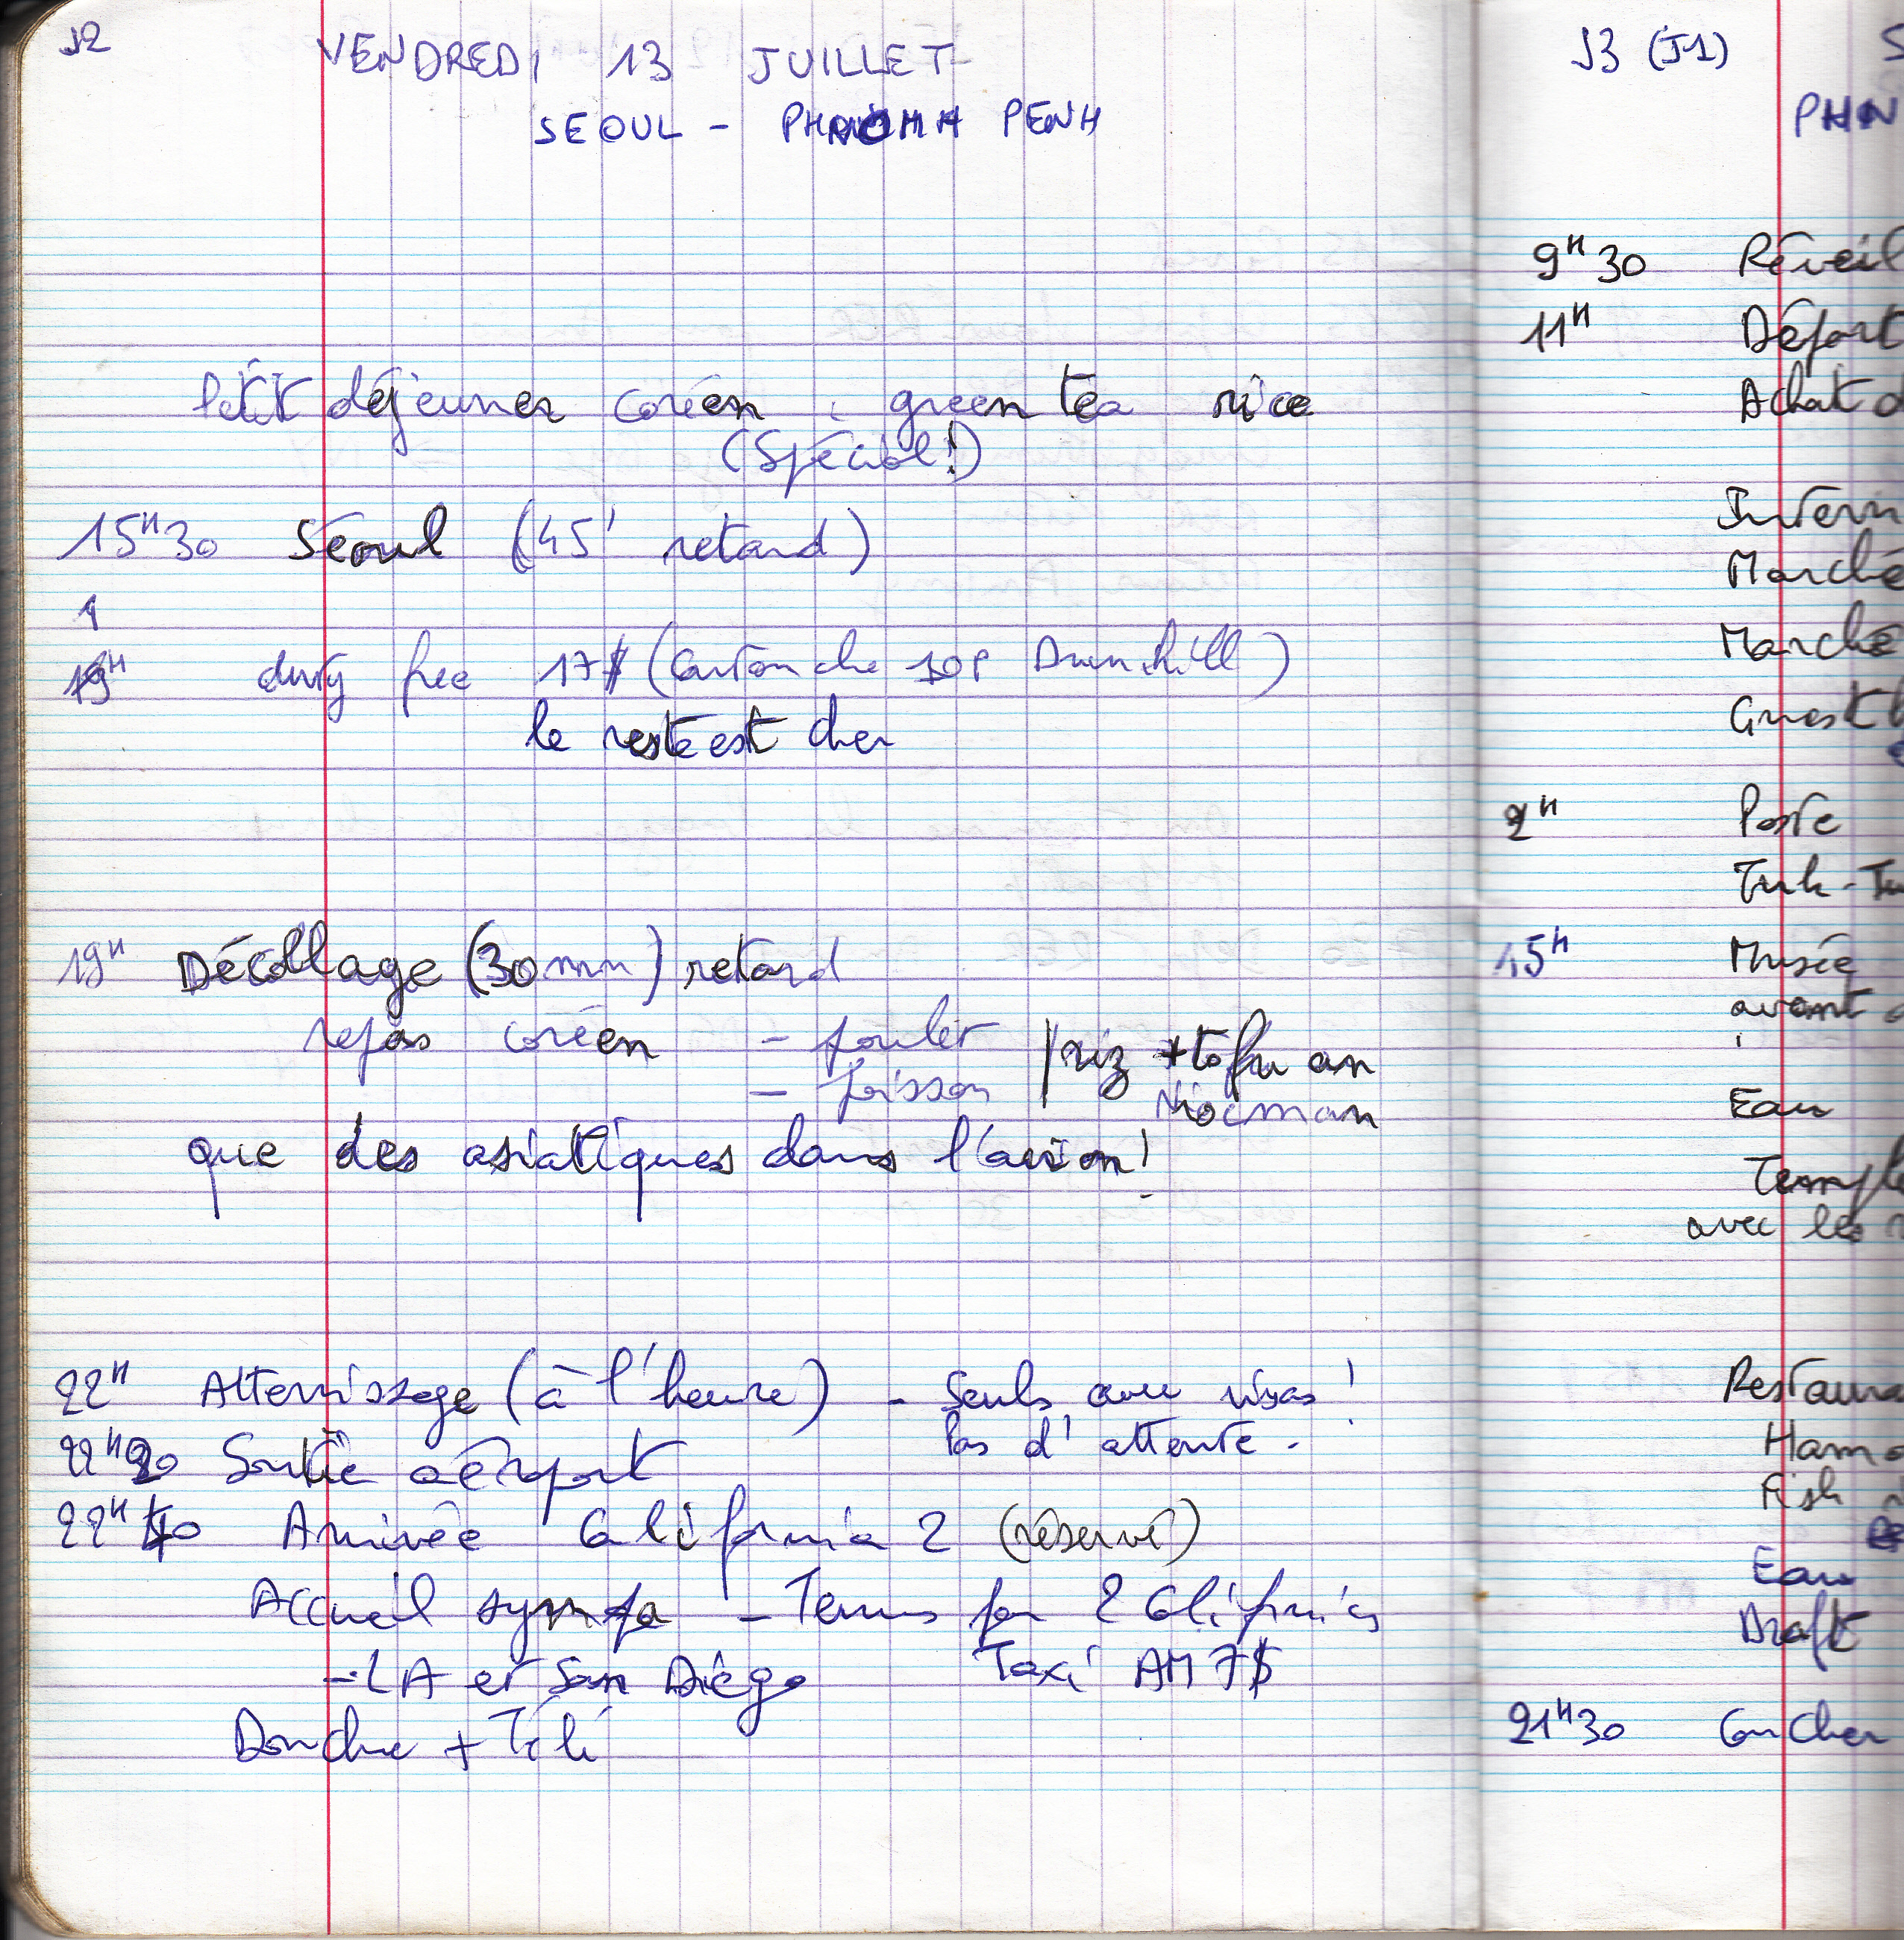 J2
VENDREDI 13 JUILLET
SEOUL - PHNOMH PENH
Petit déjeuner coréen : green tea rice
(Spécial!)
15H30 Séoul (45' retard)
19H duty free 17$ (Cartouche 10P Dunhill)
le reste est cher
19H Décollage (30mn) retard
repas coréen - poulet / riz + tofu an
- poisson
que des asiatiques dans l'avion!
22H Atterrissage (à l'heure) - Seuls avec visas!
Pas d'attente.
22H20 Sortie aéroport
22H40 Arrivée California 2 (réservé)
Accueil sympa - Tenus par 2 Californies
- LA et San Diégo Taxi AM 7$
Douche + Télé
J3 (J1) S
PHN
9H30 Réveil
11H Départ
Achat d
Intern
Marché
Marché
Guest h
2H Poste
Tuk-Tu
15H Musée
avant
Eau
Temple
avec les
Restaura
Ham
Fish
Eau
Draft
21H30 Coucher